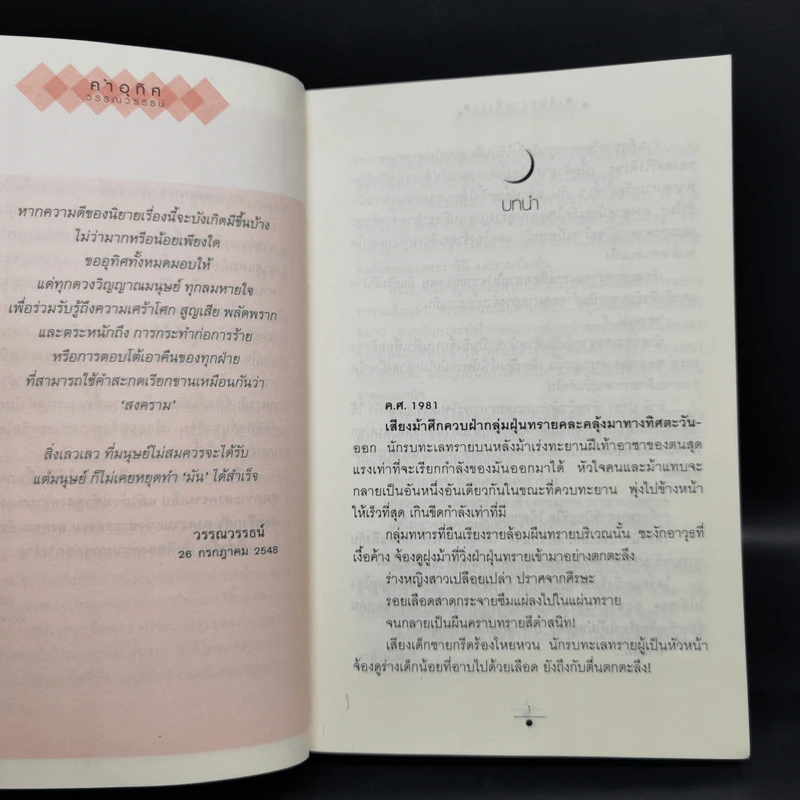 คำอุทิศ
วรรณวรรธน์
หากความดีของนิยายเรื่องนี้จะบังเกิดมีขึ้นบ้าง
ไม่ว่ามากหรือน้อยเพียงใด
ขออุทิศทั้งหมดมอบให้
แด่ทุกดวงวิญญาณมนุษย์ ทุกลมหายใจ
เพื่อร่วมรับรู้ถึงความเศร้าโศก สูญเสีย พลัดพราก
และตระหนักถึง การกระทำก่อการร้าย
หรือการตอบโต้เอาคืนของทุกฝ่าย
ที่สามารถใช้คำสะกดเรียกขานเหมือนกันว่า
'สงคราม'
สิ่งเลวเลว ที่มนุษย์ไม่สมควรจะได้รับ
แต่มนุษย์ ก็ไม่เคยหยุดทำ 'มัน' ได้สำเร็จ
วรรณวรรธน์
26 กรกฎาคม 2548
บทนำ
ค.ศ. 1981
เสียงม้าศึกควบฝ่ากลุ่มฝุ่นทรายคละคลุ้งมาทางทิศตะวัน-
ออก นักรบทะเลทรายบนหลังม้าเร่งทะยานฝีเท้าอาชาของตนสุด
แรงเท่าที่จะเรียกกำลังของมันออกมาได้ หัวใจคนและม้าแทบจะ
กลายเป็นอันหนึ่งอันเดียวกันในขณะที่ควบทะยาน พุ่งไปข้างหน้า
ให้เร็วที่สุด เกินขีดกำลังเท่าที่มี
กลุ่มทหารที่ยืนเรียงรายล้อมผืนทรายบริเวณนั้น ชะงักอาวุธที่
เงื้อค้าง จ้องดูฝูงม้าที่วิ่งฝ่าฝุ่นทรายเข้ามาอย่างตกตะลึง
ร่างหญิงสาวเปลือยเปล่า ปราศจากศีรษะ
รอยเลือดสาดกระจายซึมแผ่ลงไปในแผ่นทราย
จนกลายเป็นผืนคราบทรายสีดำสนิท!
เสียงเด็กชายกรีดร้องโหยหวน นักรบทะเลทรายผู้เป็นหัวหน้า
จ้องดูร่างเด็กน้อยที่อาบไปด้วยเลือด ยังถึงกับตื่นตกตะลึง!
1